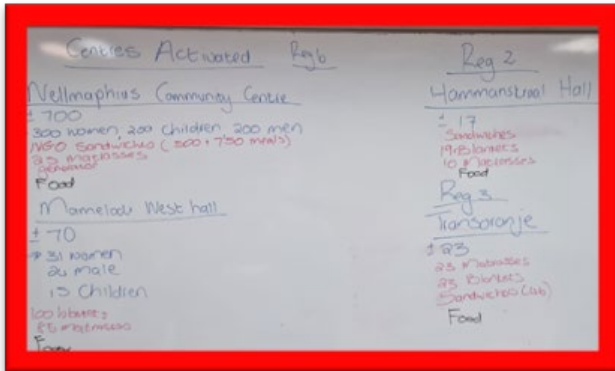 Centres Activated Reg 6
Nellmaphius Community Centre
± 700
300 women, 200 children, 200 men
NGO Sandwiches (500 + 750 meals)
25 matrasses
generator
Food
Mamelodi West hall
± 70
31 women
24 male
15 Children
100 blankets
25 matrasses
Food
Reg 2
Hammanskraal Hall
± 17
Sandwiches
19 Blankets
10 Matrasses
Food
Reg 3
Transoranje
± 23
23 Matrasses
23 Blankets
Sandwiches
Food